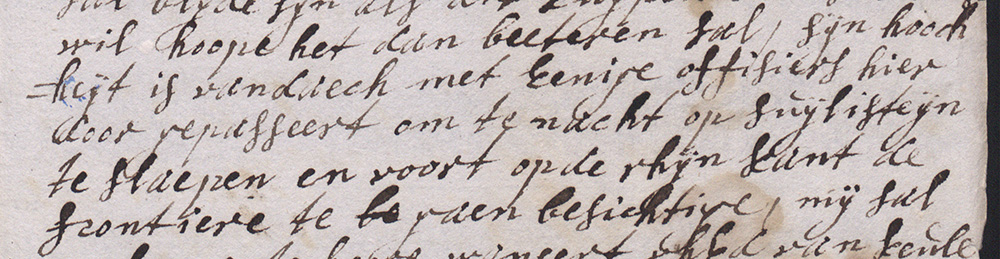 sal blyde syn als
wil hoope het dan beeteren sal, syn hooch
=heyt is vandaech met eenige offisiers hier
door gepasseert om te nacht op suylisteyn
te slaepen en voort op de rhyn kant de
frontiere te gaen besichtige, my sal
wanneert van keule